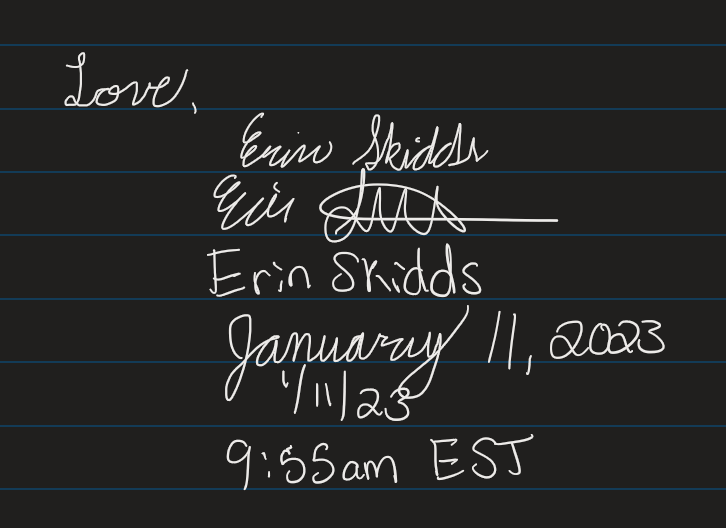 Love,
Erin Skidds
Erin
Erin Skidds
January 11, 2023
1/11/23
9:55am EST